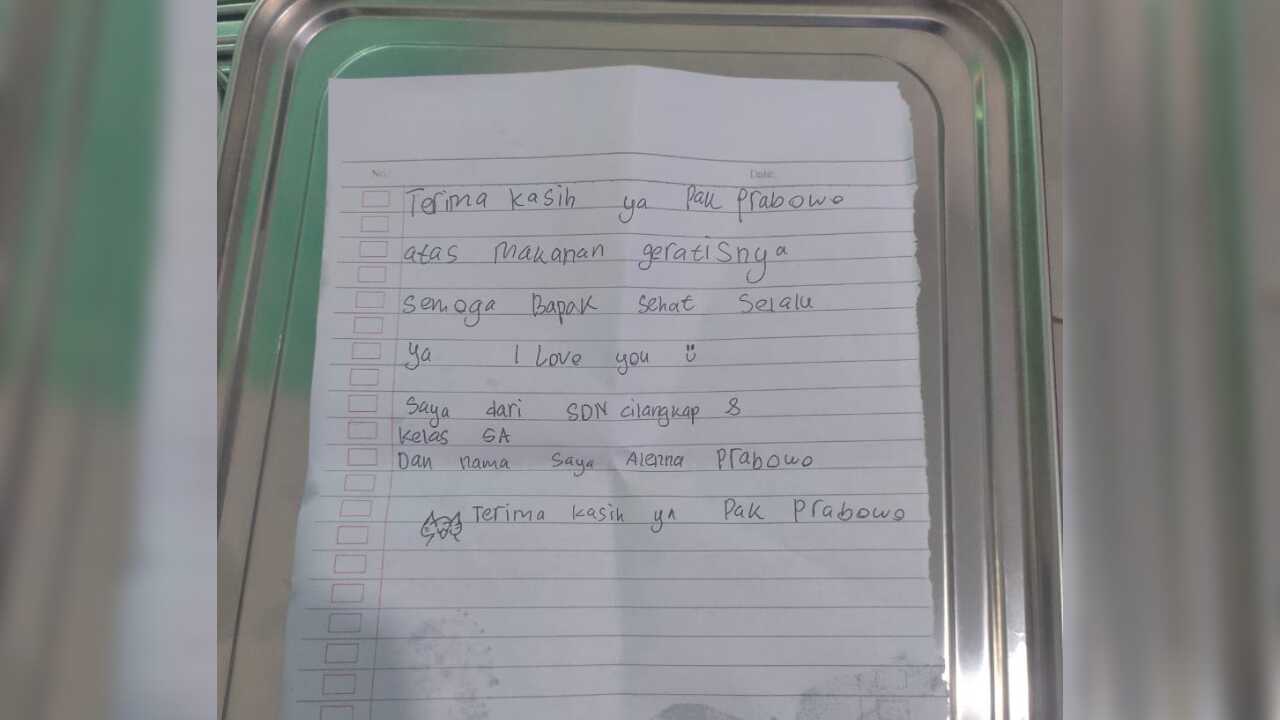 No.
Date:
Terima kasih ya Pak Prabowo
atas Makanan geratisnya
Semoga Bapak Sehat Selalu
Ya I Love you
Saya dari SDN cilangkap 8
Kelas 5A
Dan nama Saya Alenna Prabowo
Terima kasih ya Pak Prabowo